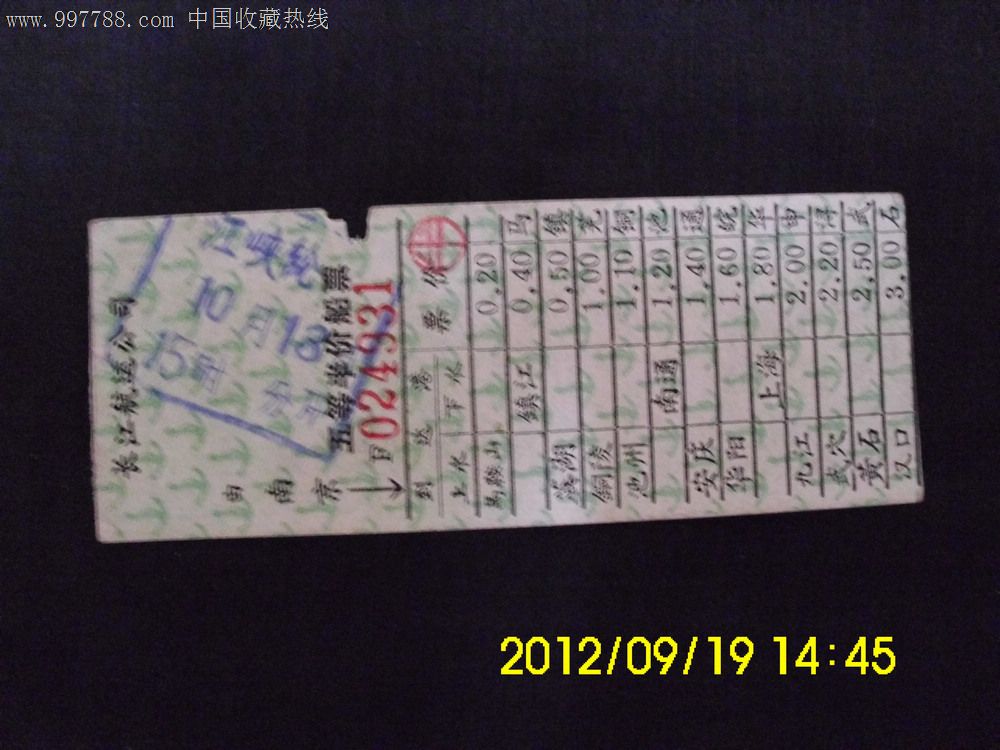 www.997788.com 中国收藏热线
长江航运公司
江峡轮
10月18
15时
由南京
五等半价船票
F0249931
到达港 票价
上水 下水
马鞍山 0.20
镇江 0.40 马
0.50 镇
芜湖 1.00 芜
铜陵 1.10 铜
池州 1.20 池
南通 1.40 通
安庆 1.60 皖
华阳 1.80 华
上海 2.00 申
九江 2.20 浔
武穴 2.50 武
黄石 3.00 石
汉口
2012/09/19 14:45